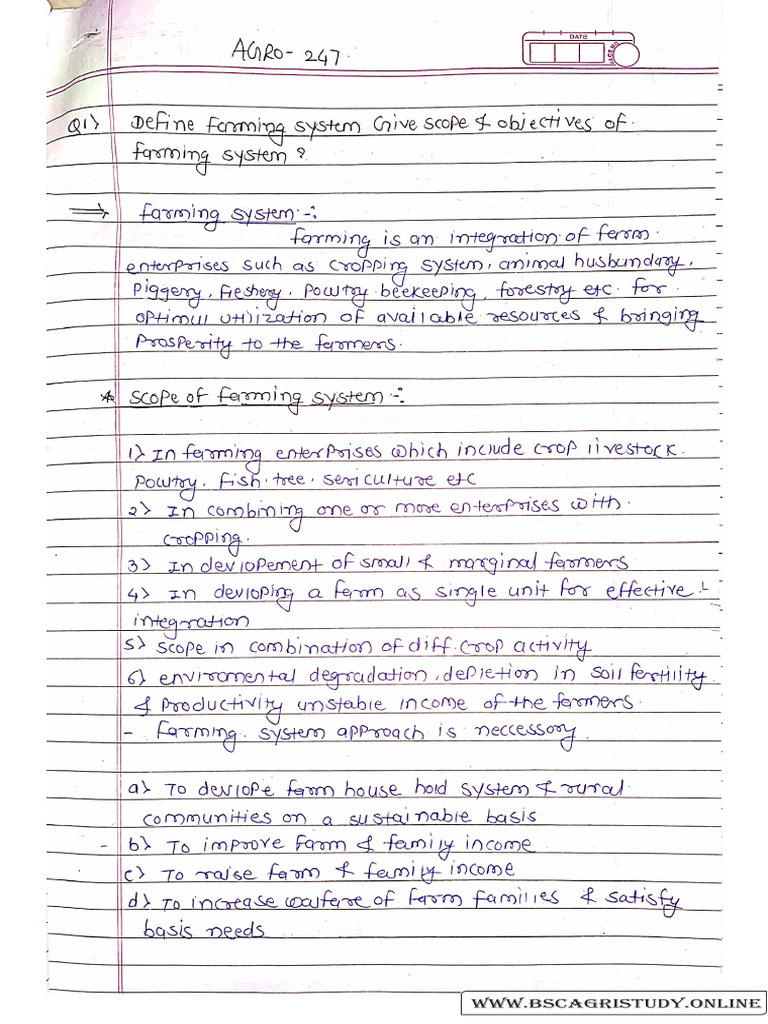 AGRO-247.
DATE
Q1) Define farming system Give scope & objectives of
farming system?
⇒ farming system -:
farming is an integration of farm
enterprises such as cropping system, animal husbundary,
piggery, fieshery, powtry beekeeping, forestry etc for
optimul utilization of available resources & bringing
prosperity to the farmers.
* scope of farming system -:
1) In farming enterprises which include crop livestock
powtry, fish, tree, sericulture etc
2) In combining one or more enterprises with
cropping.
3) In devlopement of small & marginal farmers
4) In devloping a farm as single unit for effective -
integration
5) scope in combination of diff. crop activity
6) enviromental degradation, depletion in soil fertility
& productivity unstable income of the farmers.
- farming system approach is neccessory
a) To devlope farm house hold system & rural
communities on a sustainable basis
- b) To improve farm & family income
c) To raise farm & family income
d) To increase walfare of farm families & satisfy
basis needs
WWW.BSCAGRISTUDY.ONLINE